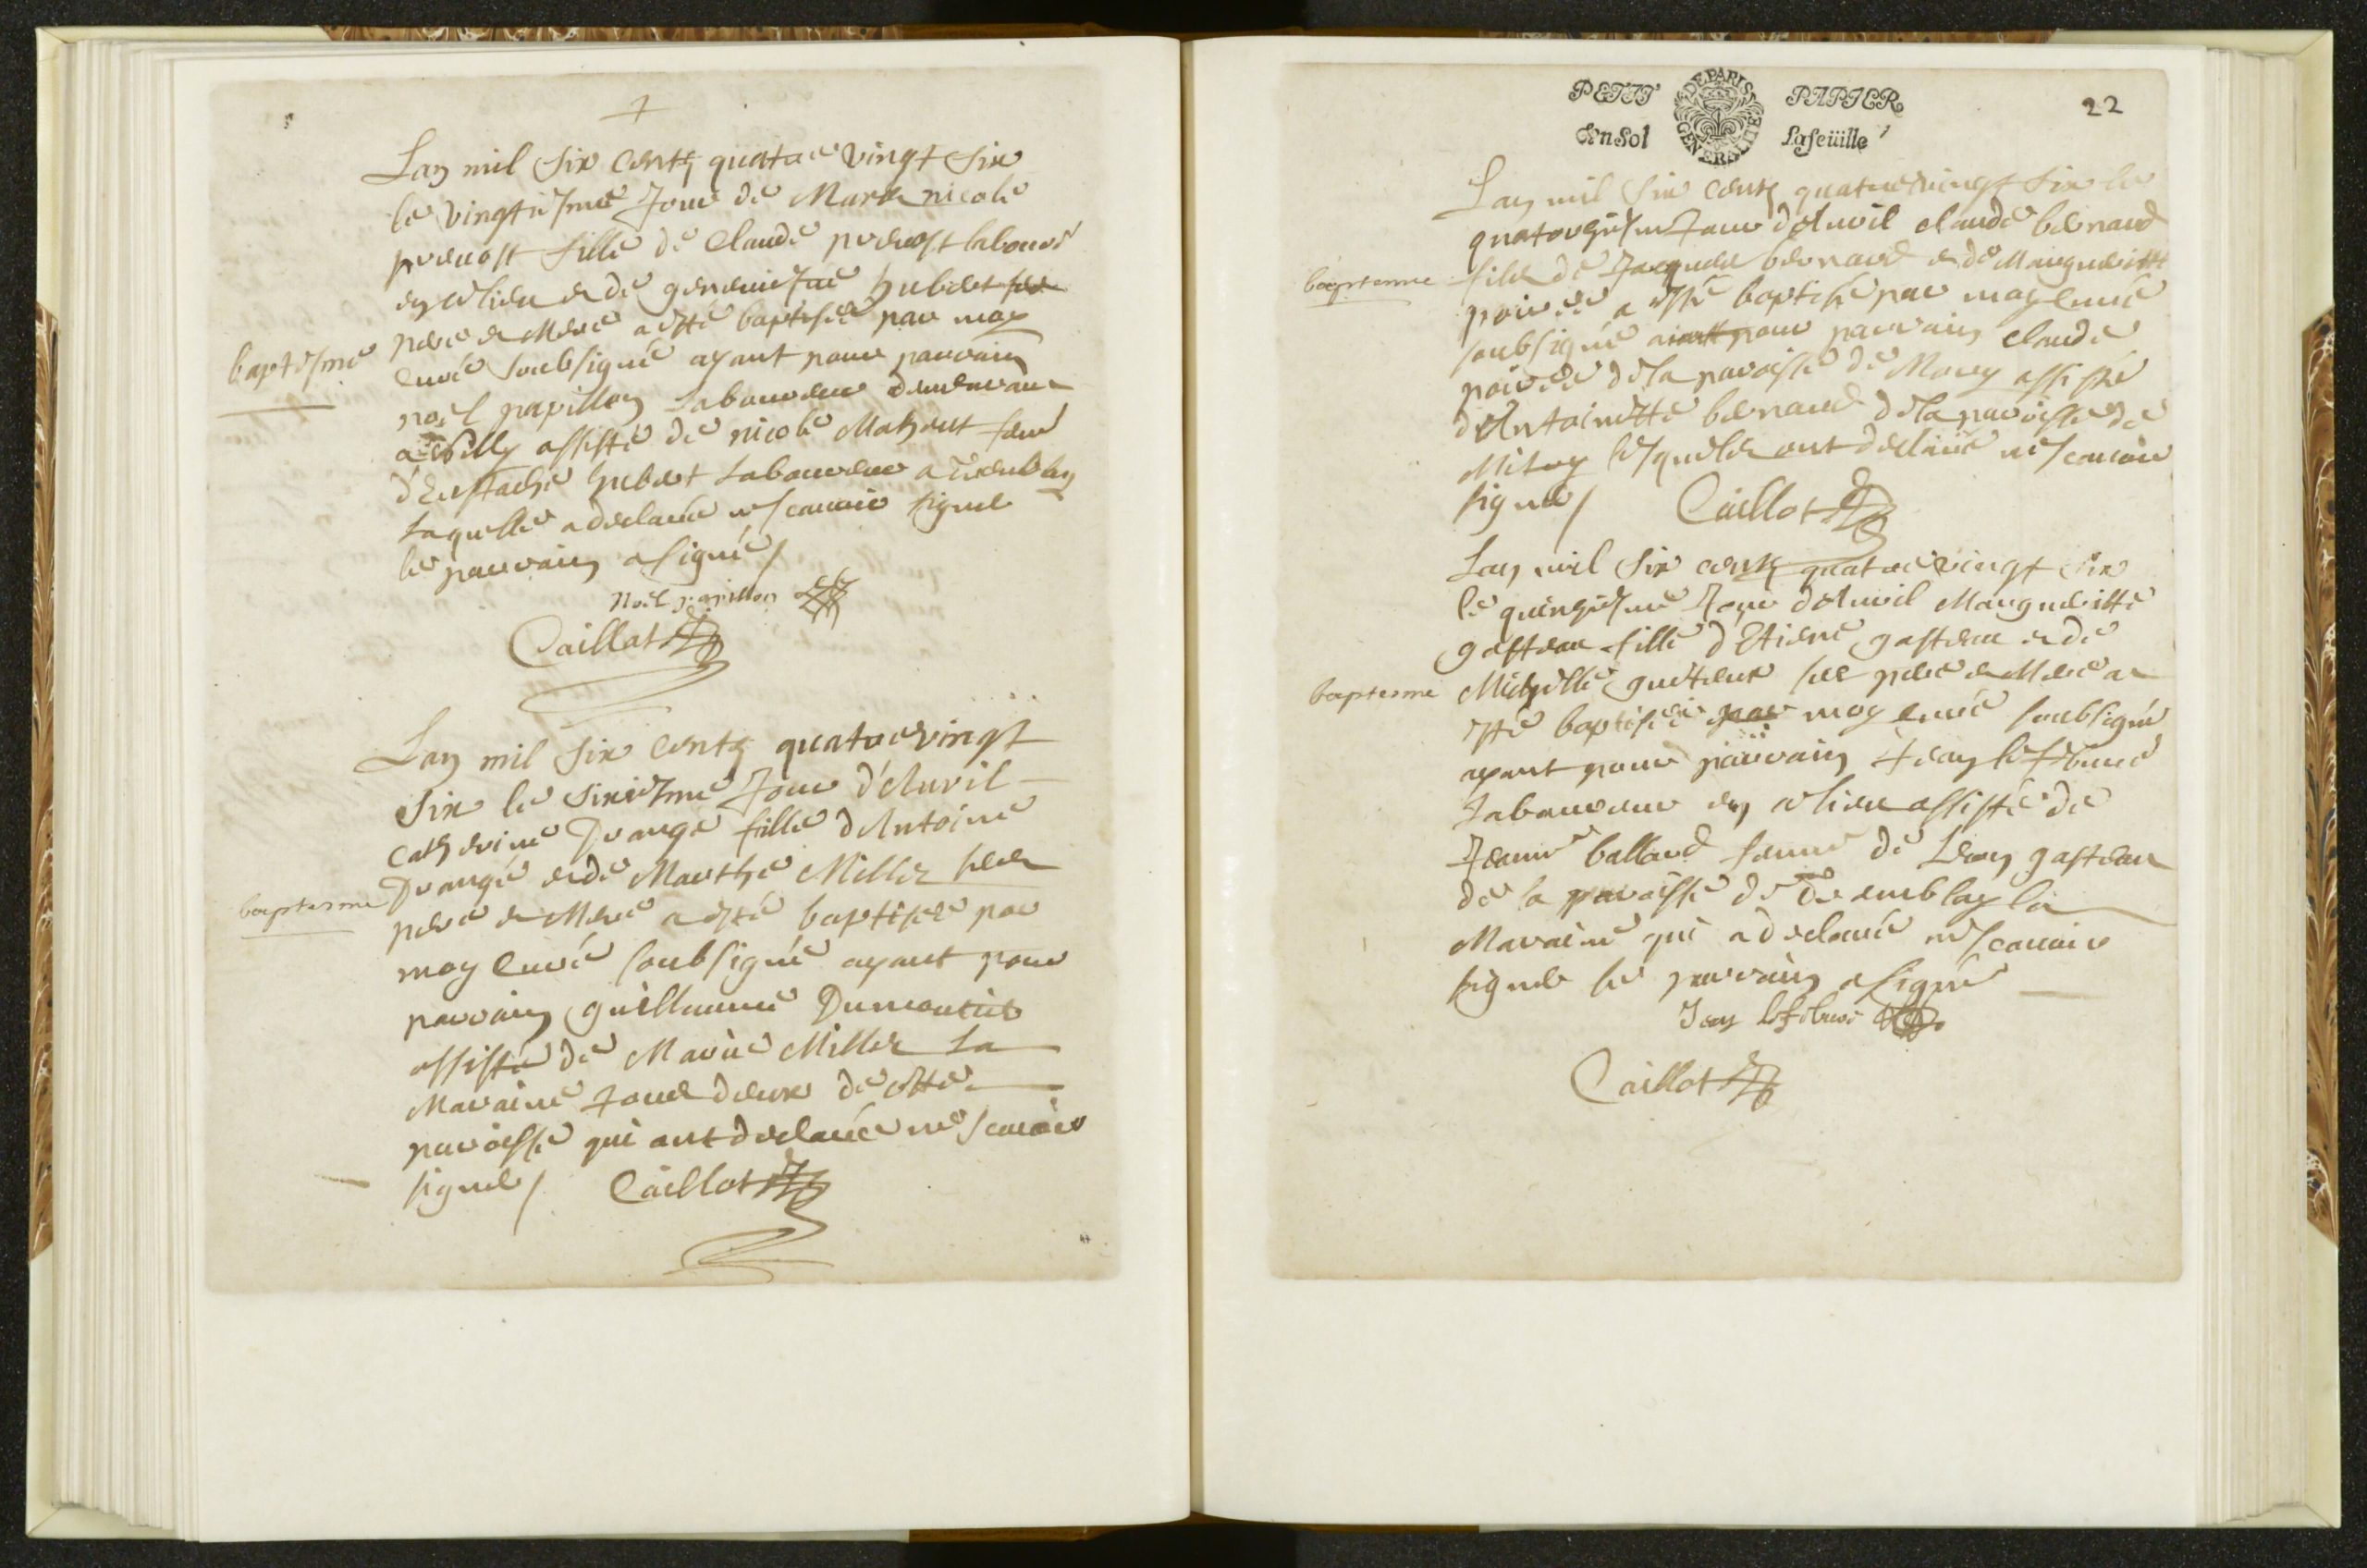 Lan mil six centz quatre vingt six
le vingtiesme Jour de Mars nicole
preuost fille de Claude preuost labour
en ce lieu et de geneuiefue hubert ses
pere et Mere a esté baptisée par moy
baptesme
Curé soubsigné ayant pour parrain
noel papillon Laboureur demeurant
a assisté de nicole Mahout fem
d'Eustache hubert Laboureur a Tremblay
Laquelle a declaré ne scauoir signer
le parrain a signé /
Noel papillon
Caillot
Lan mil six centz quatre vingt
Six le sixiesme Jour d'Auril
Catherine Drange fille d'Antoine
Drange et de Marthe Miller ses
baptesme
pere et Mere a esté baptisée par
moy Curé soubsigné ayant pour
parrain guillaume Dumoutier
assisté de Marie Miller La
Maraine Tous deux de cette
paroisse qui ont declaré ne scauoir
signer / Caillot
PETIT PAPIER
22
Un Sol La feüille
DE PARIS GENERALITE
Lan mil six centz quatre vingt six le
quatorziesme Jour d'Auril claude bernard
baptesme
fils de Jacques bernard et de Margueritte
poirée a esté baptisé par moy Curé
soubsigné aiant pour parrain claude
poirée de la paroisse de Mory assisté
d'Antoinette bernard de la paroisse de
Mitry lesquels ont declaré ne scauoir
signer / Caillot
Lan mil six centz quatre vingt six
le quinziesme Jour d'Auril Margueritte
gasteau fille d'Etiene gasteau et de
baptesme
Michelle ses pere et Mere a
esté baptisée par moy Curé soubsigné
ayant pour parrain Jean lefebure
Laboureur en ce lieu assisté de
Jeanne ballard femme de Lean gasteau
de la paroisse de Tremblay la
Maraine qui a declaré ne scauoir
signer le parrain a signé
Jean lefebure
Caillot